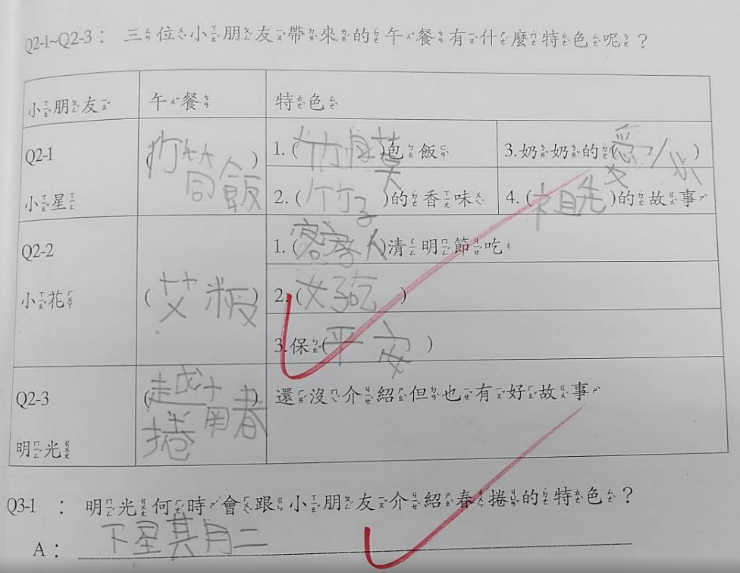 Q2-1~Q2-3：三位小朋友帶來的午餐有什麼特色呢？
小朋友 午餐 特色
Q2-1 小星 (竹筒飯)
1.(竹膜)包飯
2.(竹子)的香味
3.奶奶的(愛心)
4.(祖先)的故事
Q2-2 小花 (艾粄)
1.(客家人)清明節吃
2.(好吃)
3.保(平安)
Q2-3 明光 (越南春捲)
還沒介紹但也有好故事
Q3-1：明光何時會跟小朋友介紹春捲的特色？
A：下星其月二